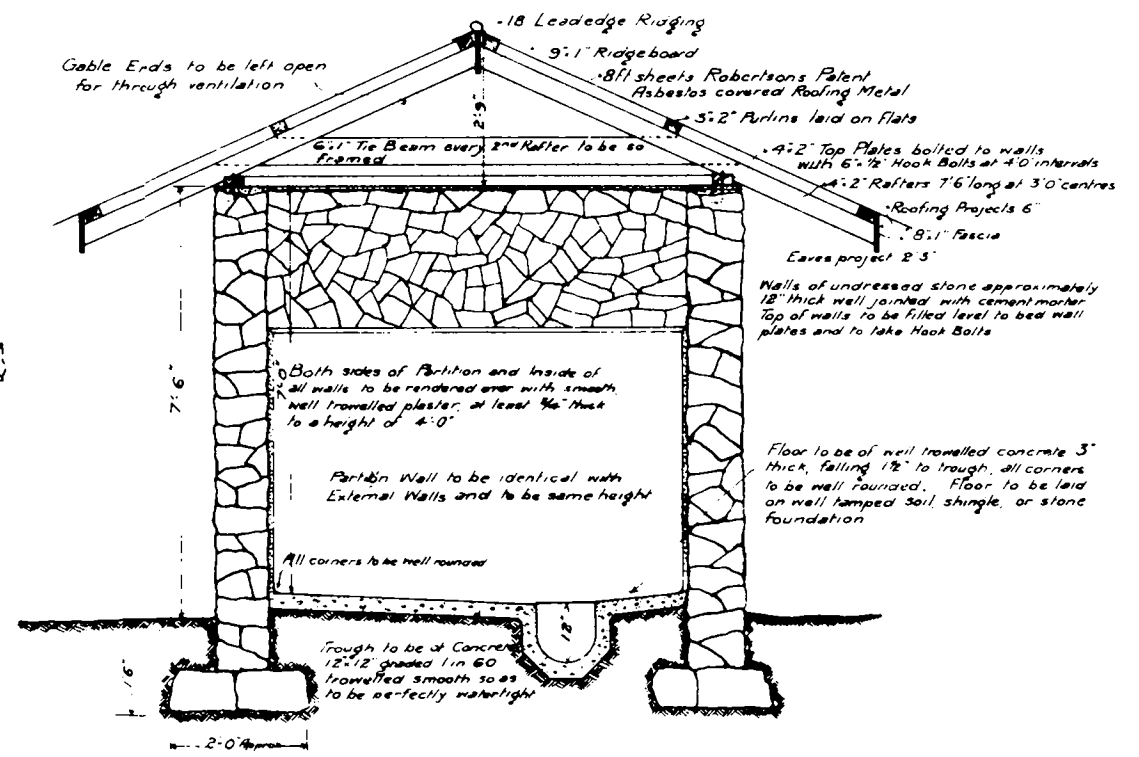 ·18 Leadedge Ridging
9"·1" Ridgeboard
·8ft sheets Robertsons Patent
Asbestos covered Roofing Metal
3"·2" Purlins laid on Flats
Gable Ends to be left open
for through ventilation
2'·9"
6"·1" Tie Beam every 2nd Rafter to be so
framed
·4"·2" Top Plates bolted to walls
with 6"·½" Hook Bolts at 4'0" intervals
4"·2" Rafters 7'6" long at 3'0" centres
·Roofing Projects 6"
8"·1" Fascia
Eaves project 2'3"
Walls of undressed stone approximately
12" thick well jointed with cement morter
Top of walls to be filled level to bed wall
plates and to take Hook Bolts
7'·6"
7'·0"
Both sides of Partition and Inside of
all walls to be rendered over with smooth
well trowelled plaster, at least ¾" thick
to a height of 4'·0"
Partition Wall to be identical with
External Walls and to be same height
Floor to be of well trowelled concrete 3"
thick, falling 1½" to trough, all corners
to be well rounded. Floor to be laid
on well tamped soil, shingle, or stone
foundation
All corners to be well rounded
12"
Trough to be of Concrete
12"·12" graded 1 in 60
trowelled smooth so as
to be perfectly watertight
1'6"
2'·0" Approx